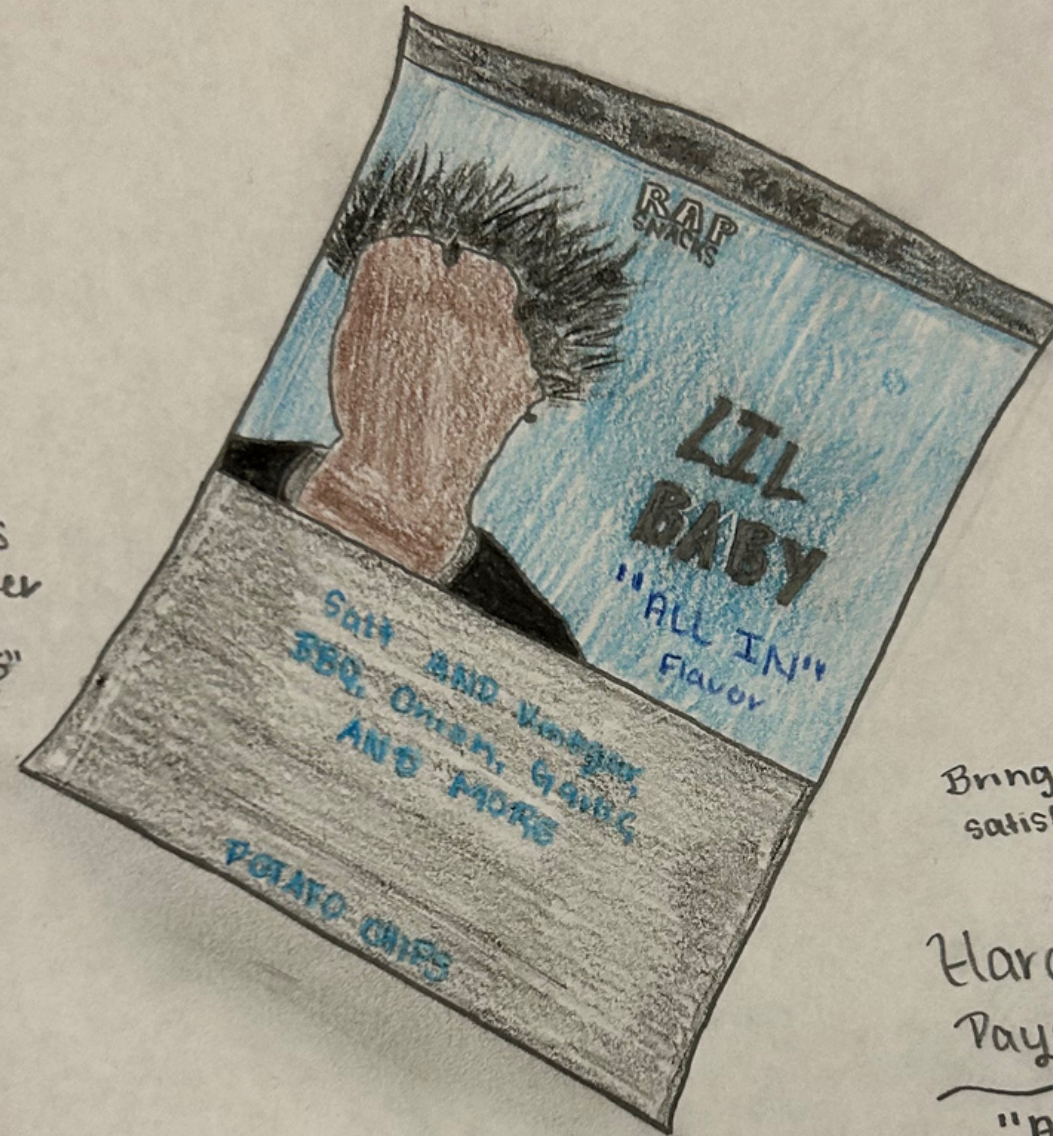 RAP
SNACKS
LIL
BABY
"ALL IN"
Flavor
Salt AND Vinegar,
BBQ, Onion, Garlic
AND MORE
POTATO CHIPS
s
er
s"
Bring
satis
Hard
Pay
"A